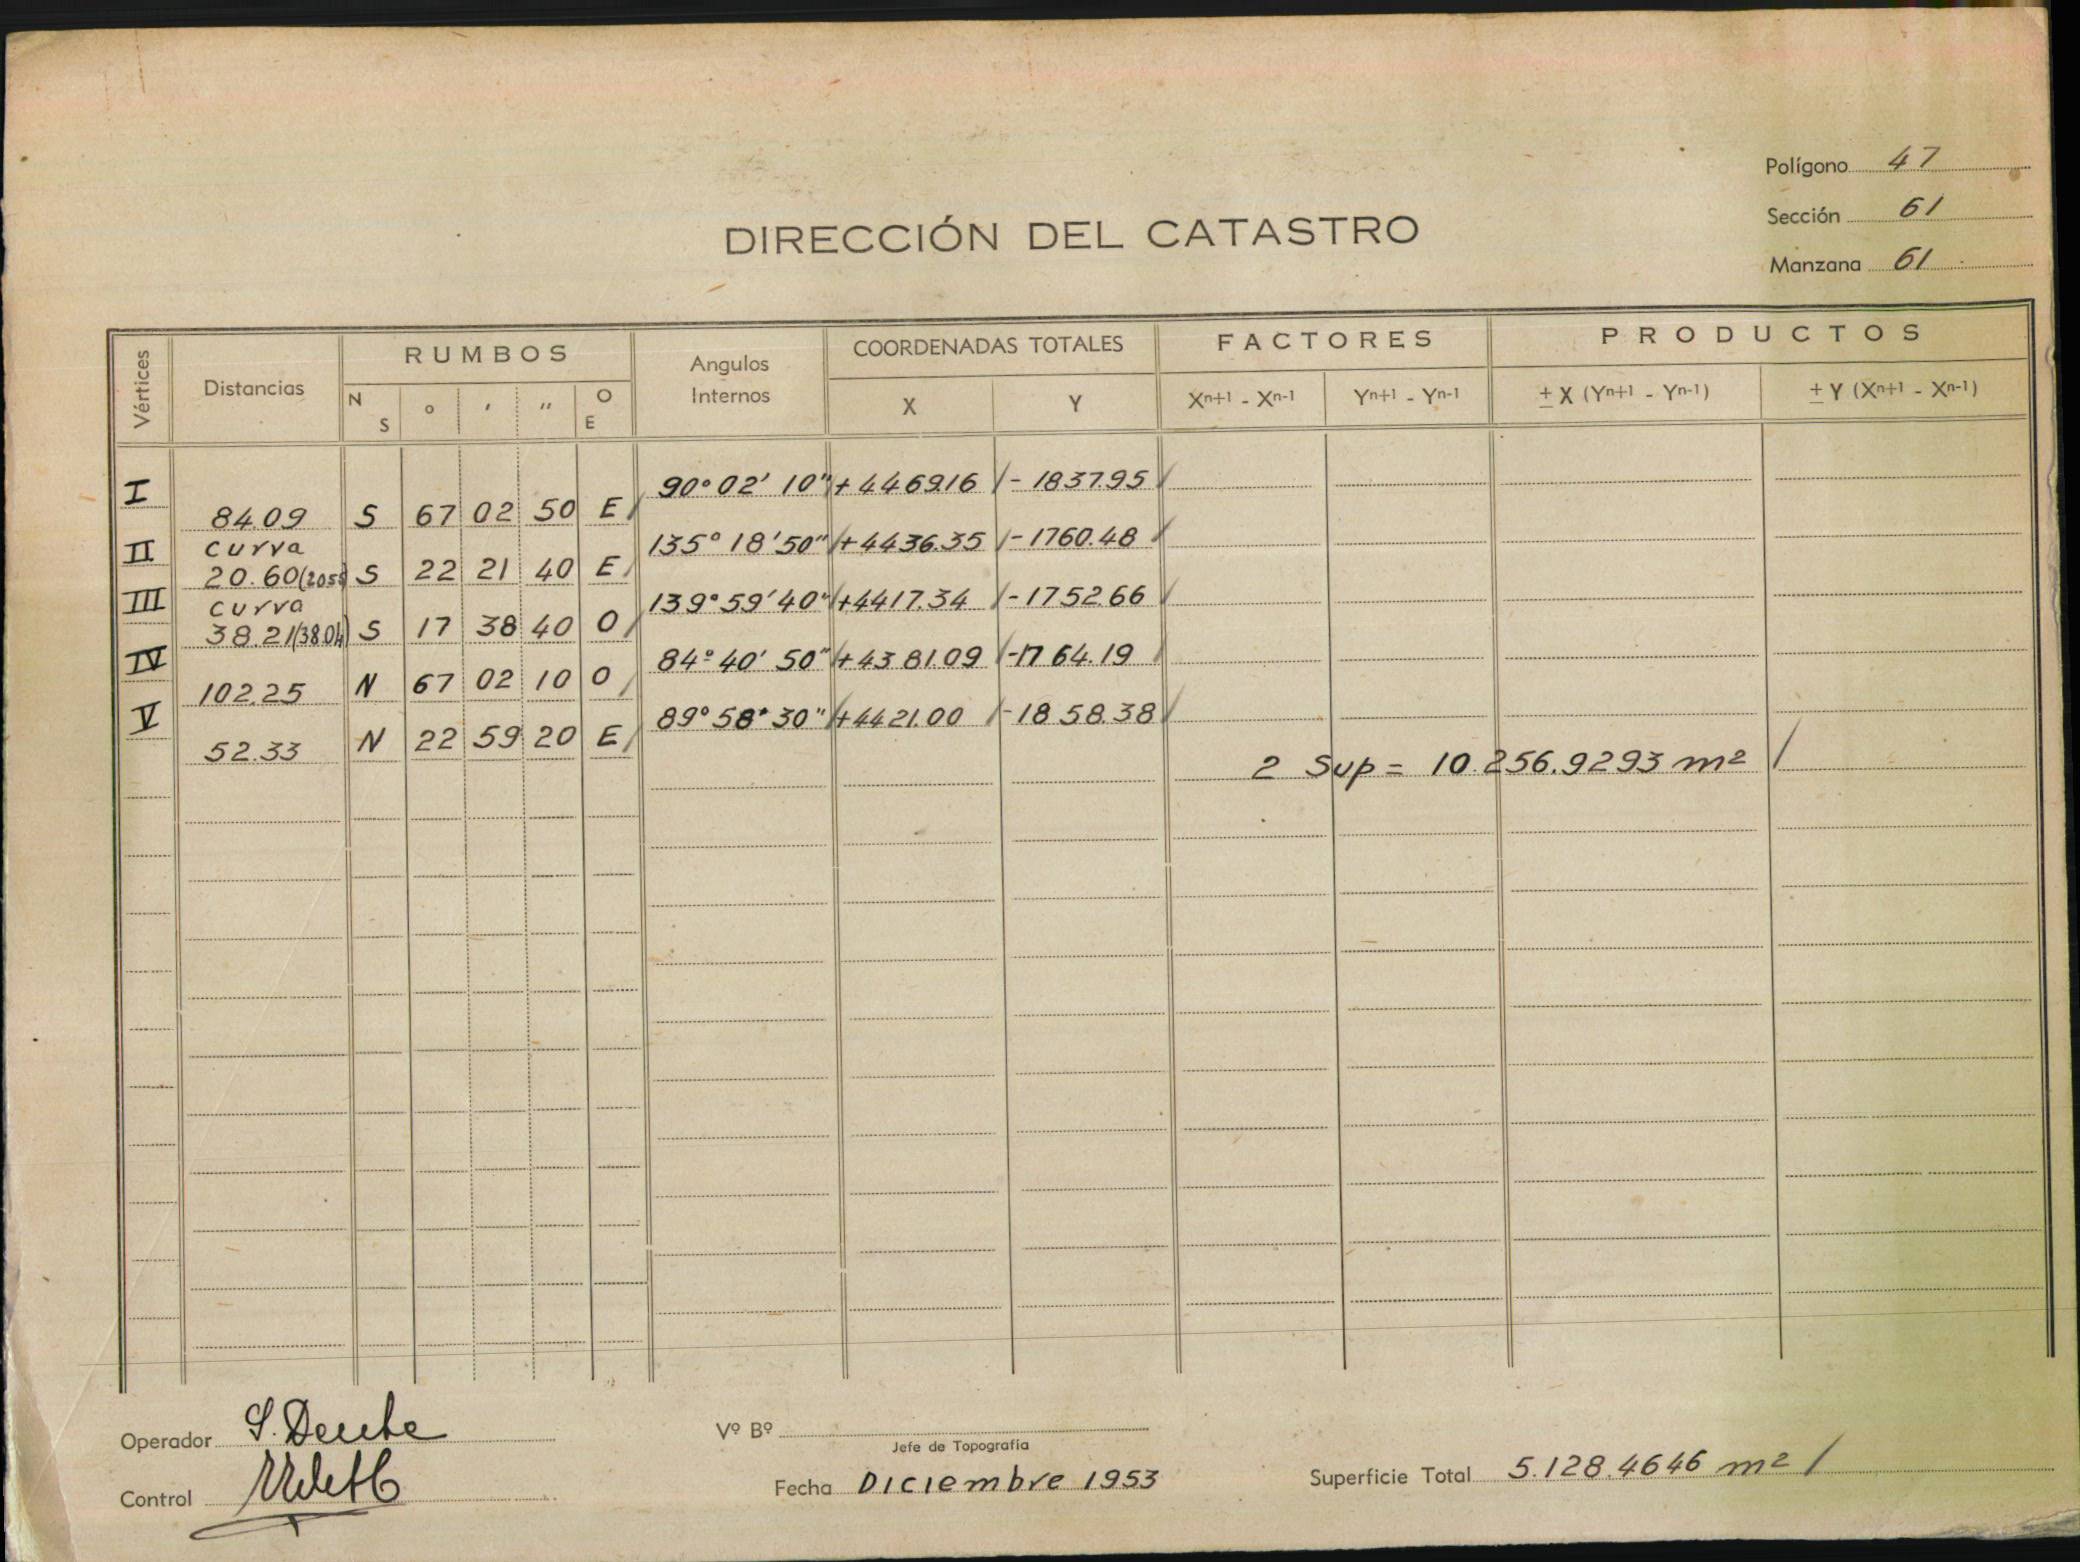 Polígono 47
Sección 61
Manzana 61
DIRECCIÓN DEL CATASTRO
Vértices Distancias RUMBOS Angulos Internos COORDENADAS TOTALES FACTORES PRODUCTOS
N S ° ′ ″ O E X Y Xⁿ⁺¹ - Xⁿ⁻¹ Yⁿ⁺¹ - Yⁿ⁻¹ ± X (Yⁿ⁺¹ - Yⁿ⁻¹) ± Y (Xⁿ⁺¹ - Xⁿ⁻¹)
I 90° 02' 10" +4469.16 / - 1837.95 /
84.09 S 67 02 50 E /
II curva 135° 18' 50" +4436.35 / - 1760.48 /
20.60 (20.55) S 22 21 40 E /
III curva 139° 59' 40" +4417.34 / - 1752.66 /
38.21 (38.04) S 17 38 40 O /
IV 84° 40' 50" +4381.09 / -1764.19 /
102.25 N 67 02 10 O /
V 89° 58' 30" +4421.00 / -1858.38 /
52.33 N 22 59 20 E /
2 Sup = 10.256.9293 m² /
Operador
Control
Vº Bº
Jefe de Topografía
Fecha Diciembre 1953
Superficie Total 5.128.4646 m² /